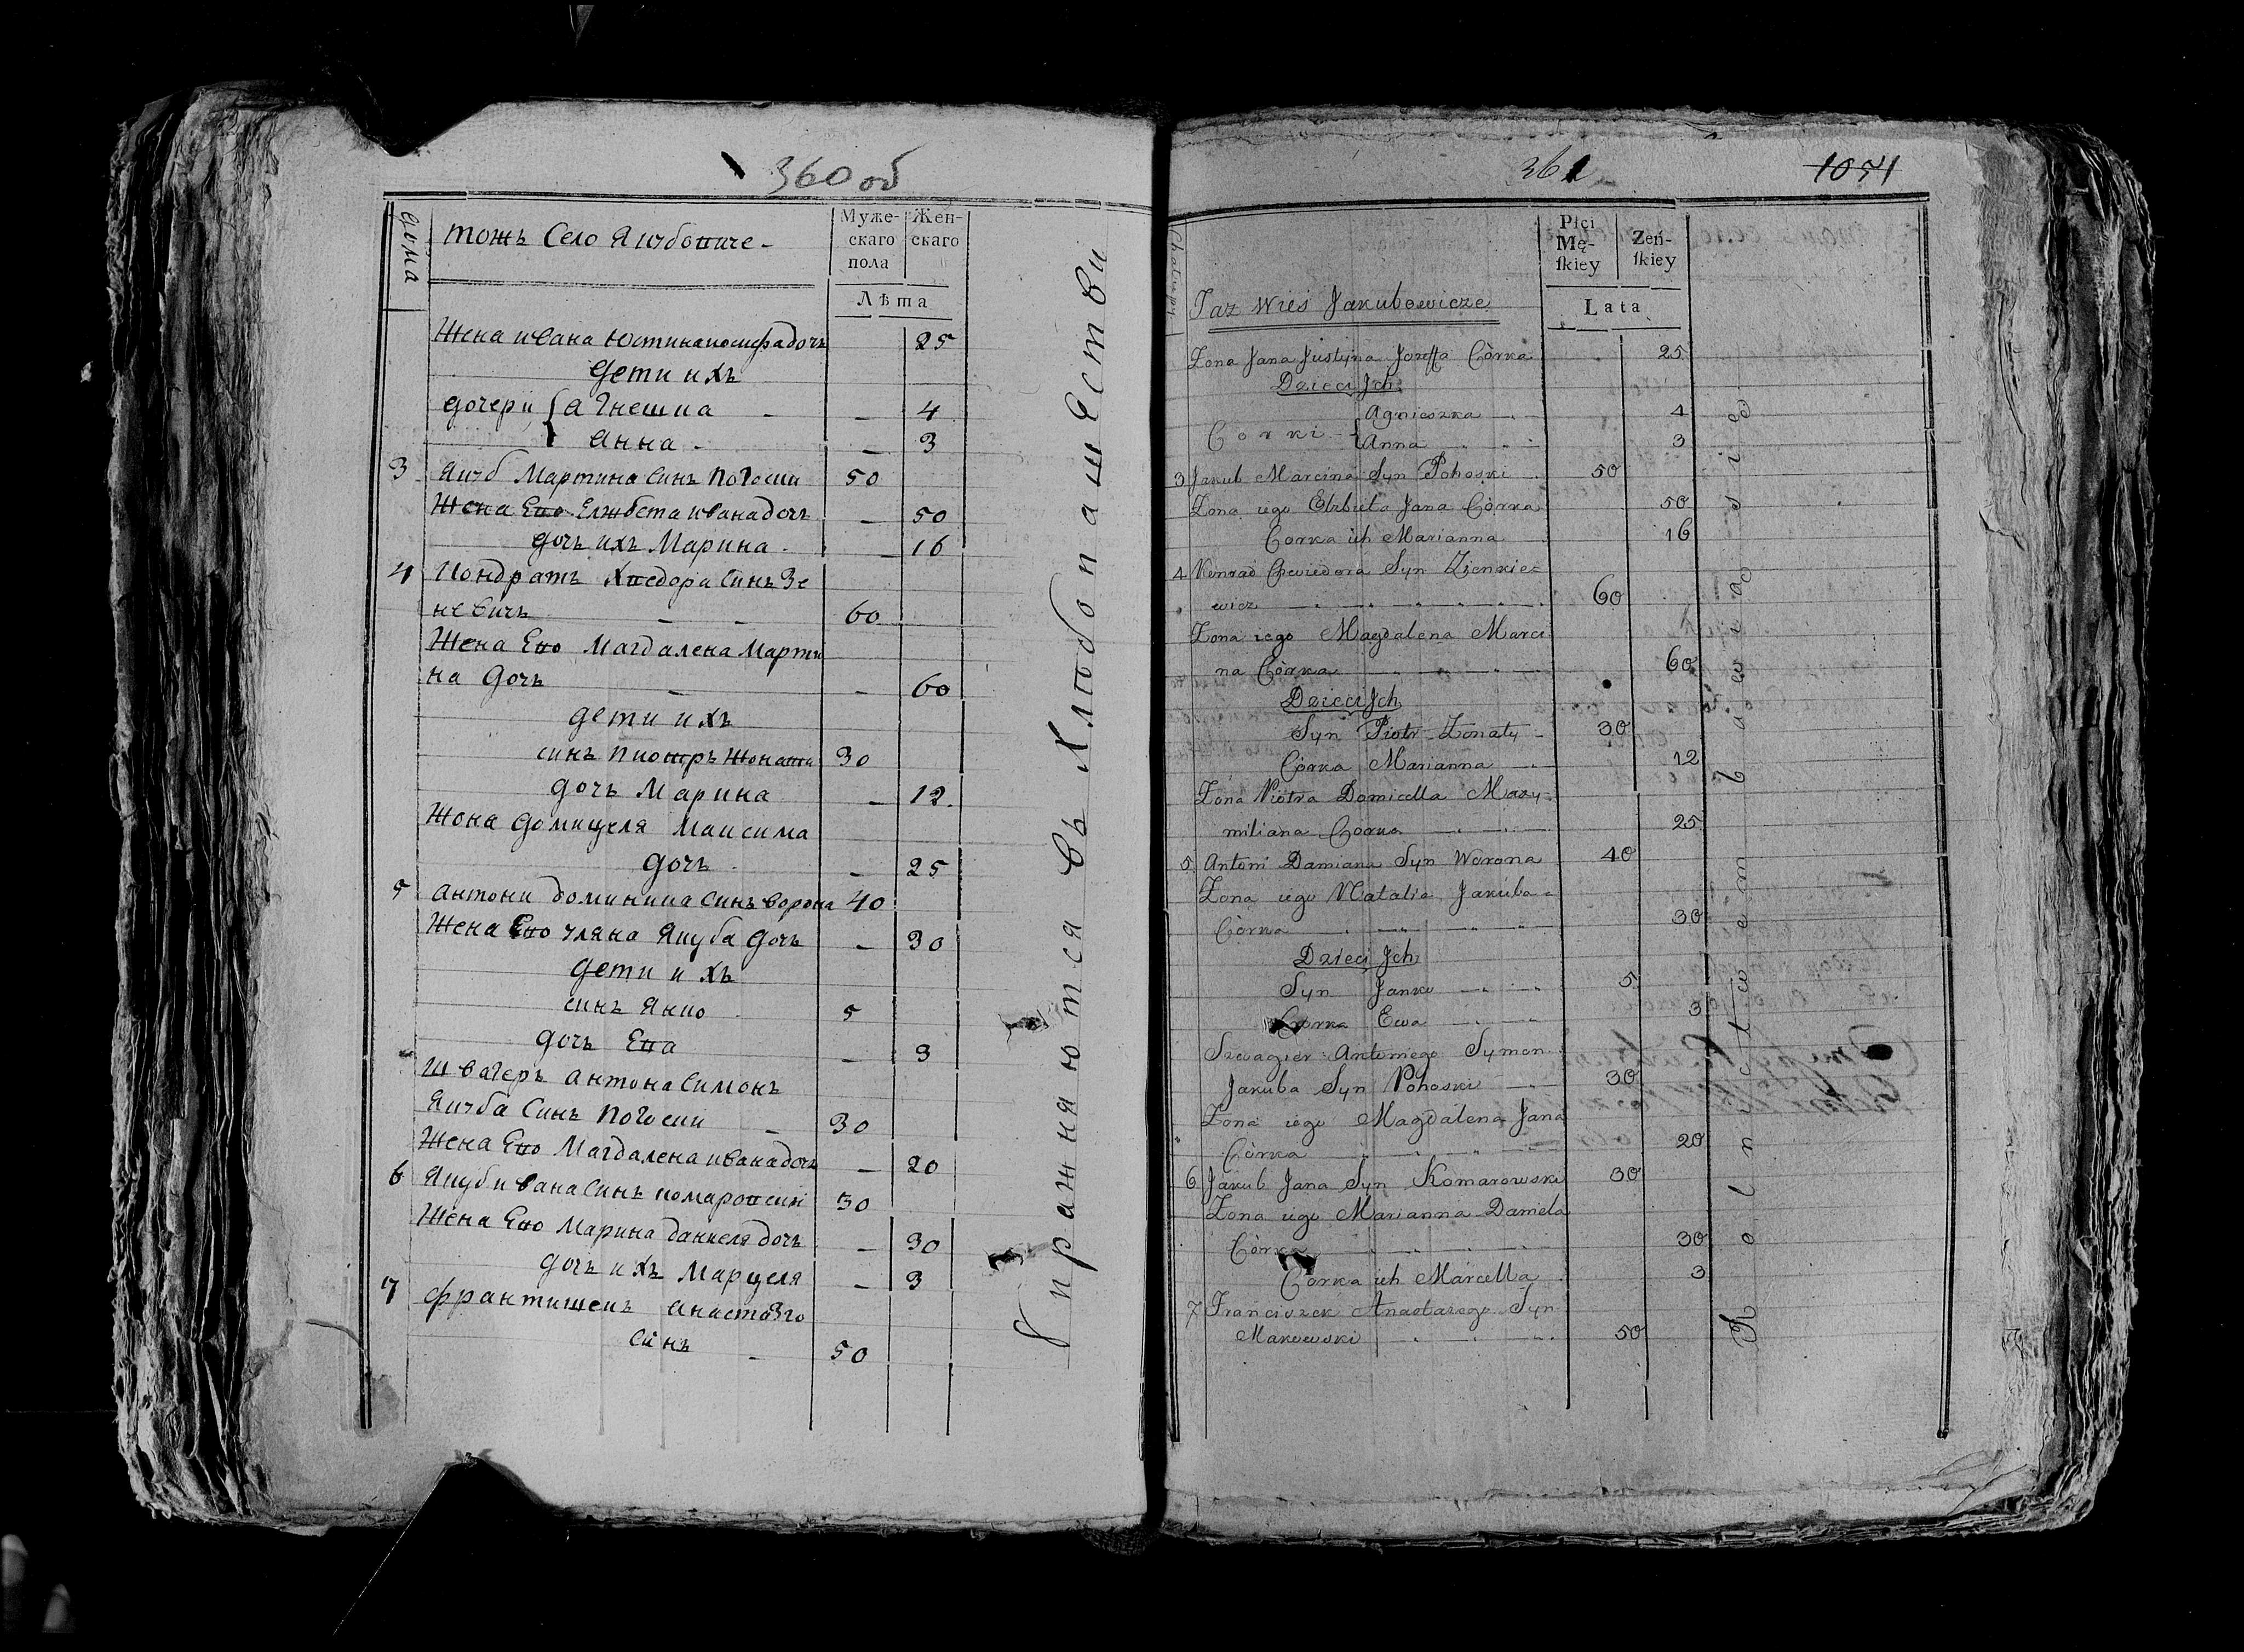 360 об
дома
тожъ Село Якубовиче -
Муже-
скаго
пола
Жен-
скаго
Лѣта
Жена ивана Юстина иосифа дочъ 25
дети ихъ
дочери { Агнешка - - 4
анна - - 3
3 Якуб Мартина синъ Погоски 50
Жена Ево Елжбета ивана дочъ - 50
дочъ ихъ Марина - - 16
4 Кондратъ Хведора синъ Зе
невичъ - - 60
Жена Ево Магдалена Марти
на дочъ - - 60
дети ихъ
синъ Пиотръ жонати 30
дочъ Марина - 12
Жона Домицеля Максима
дочъ - - 25
5 антони доминика синъ ворона 40
Жена Ево уляна Якуба дочъ - 30
дети ихъ
синъ Янко - 5
дочъ Ева - 3
швагеръ антона симонъ
Якуба синъ Погоски - 30
Жена Ево Магдалена ивана дочъ - 20
6 Якуб ивана синъ комаровски 30
Жена Ево Марина даниеля дочъ - 30
дочъ ихъ Марцеля - 3
7 франтишекъ анастазго
синъ - 50
упражняются въ Хлебопашестви
361
1051
Chałupy
Płci
Mę-
ſkiey
Żeń-
ſkiey
Lata
Taz Wieś Jakubowicze
Zona Jana Justyna Jozeffa Córka 25
Dzieci Jch
Agnieszka - 4
Corki { Anna - 3
3 Jakub Marcina Syn Pohoski 50
Zona iego Elzbieta Jana Córka 50
Corka ich Marianna 16
4 Konrad Chwiedora Syn Zienkie=
wicz 60
Zona iego Magdalena Marci
na Córka 60
Dzieci Jch
Syn Piotr Zonaty - 30
Córka Marianna - 12
Zona Piotra Domicella Maxy=
miliana Corka 25
5 Antoni Damiana Syn Worona 40
Zona iego Natalia Jakuba=
Córka 30
Dzieci Jch
Syn Janko 5
Corka Ewa 3
Szwagier Antoniego Symon
Jakuba Syn Pohoski 30
Zona iego Magdalena Jana
Córka 20
6 Jakub Jana Syn Komarowski 30
Zona iego Marianna Daniela
Córka 30
Corka ich Marcella 3
7 Franciszek Anastazego Syn
Makowski 50
Rolnictwem bawią się